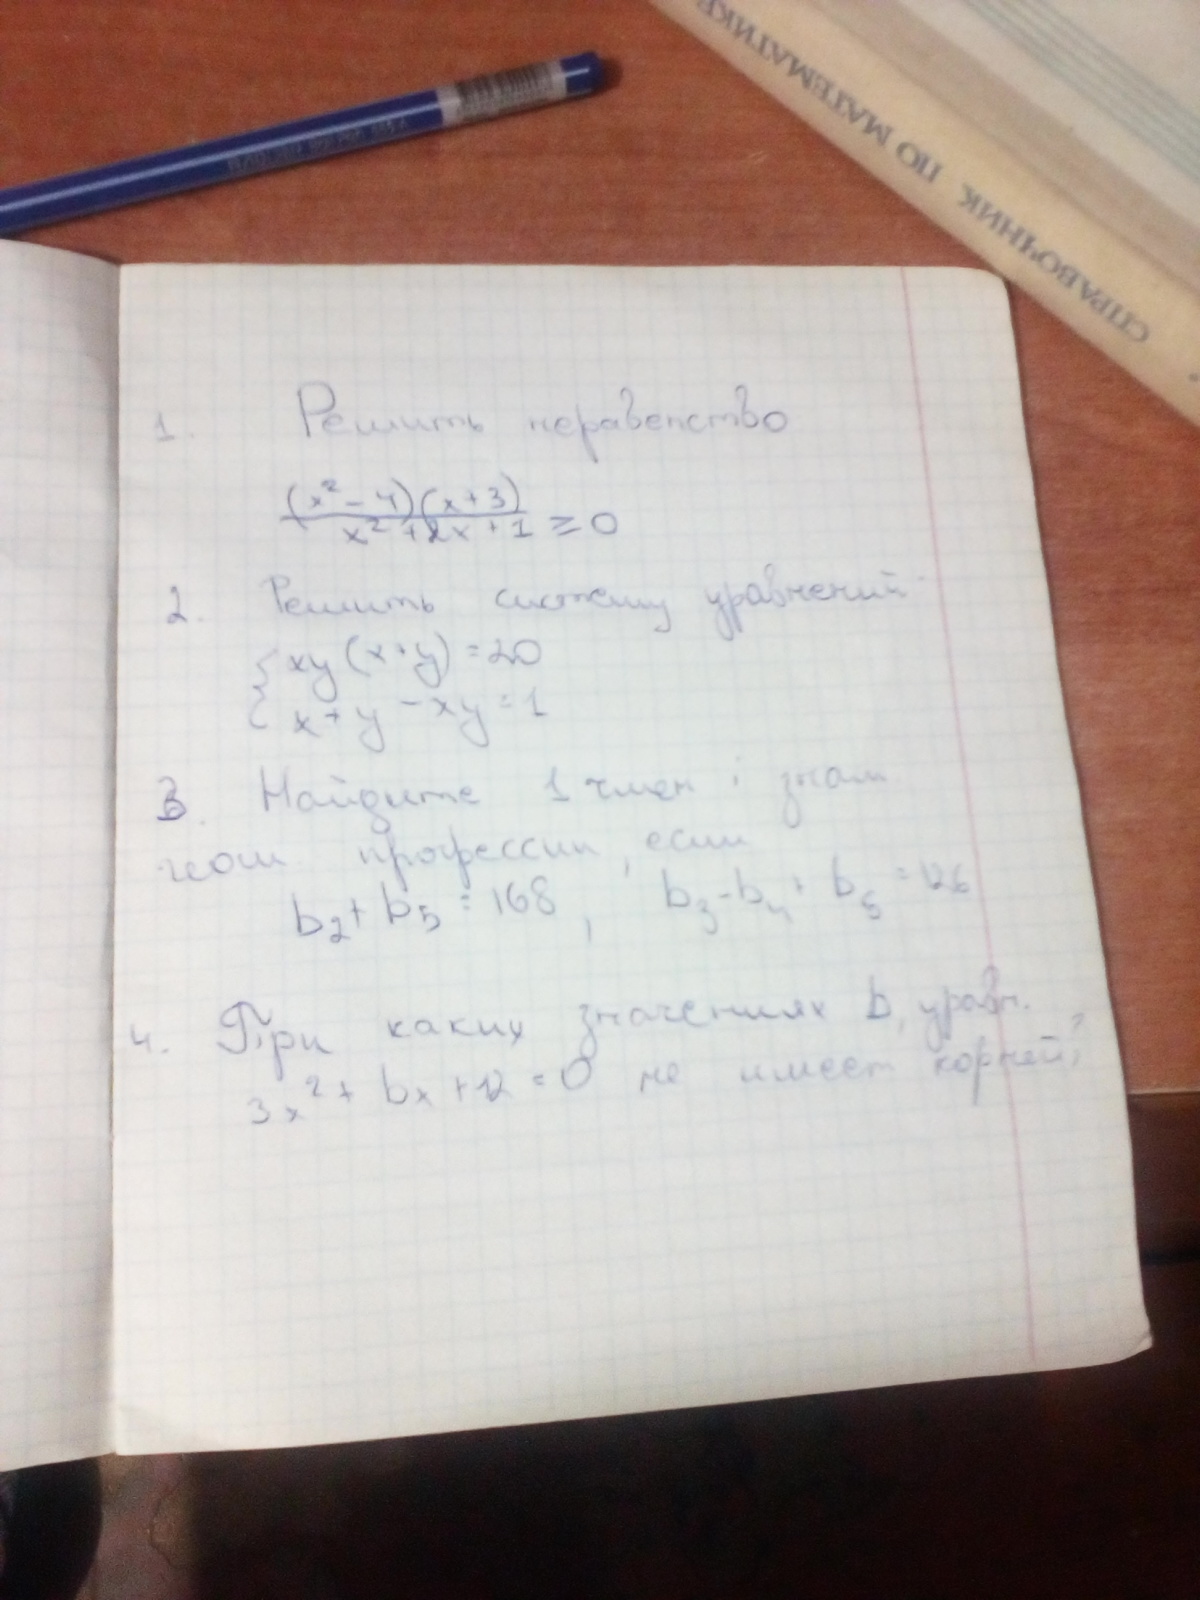 СПРАВОЧНИК ПО МАТЕМАТИКЕ
1. Решить неравенство
(x² - 4)(x+3)
x² + 2x + 1 ≥ 0
2. Решить систему уравнений
xy(x+y) = 20
x+y - xy = 1
3. Найдите 1 член и знам
прогрессии, если
b₂ + b₅ = 168, b₃ - b₄ + b₅ = 126
4. При каких значениях b, уравн.
3x² + bx + 12 = 0 не имеет корней?